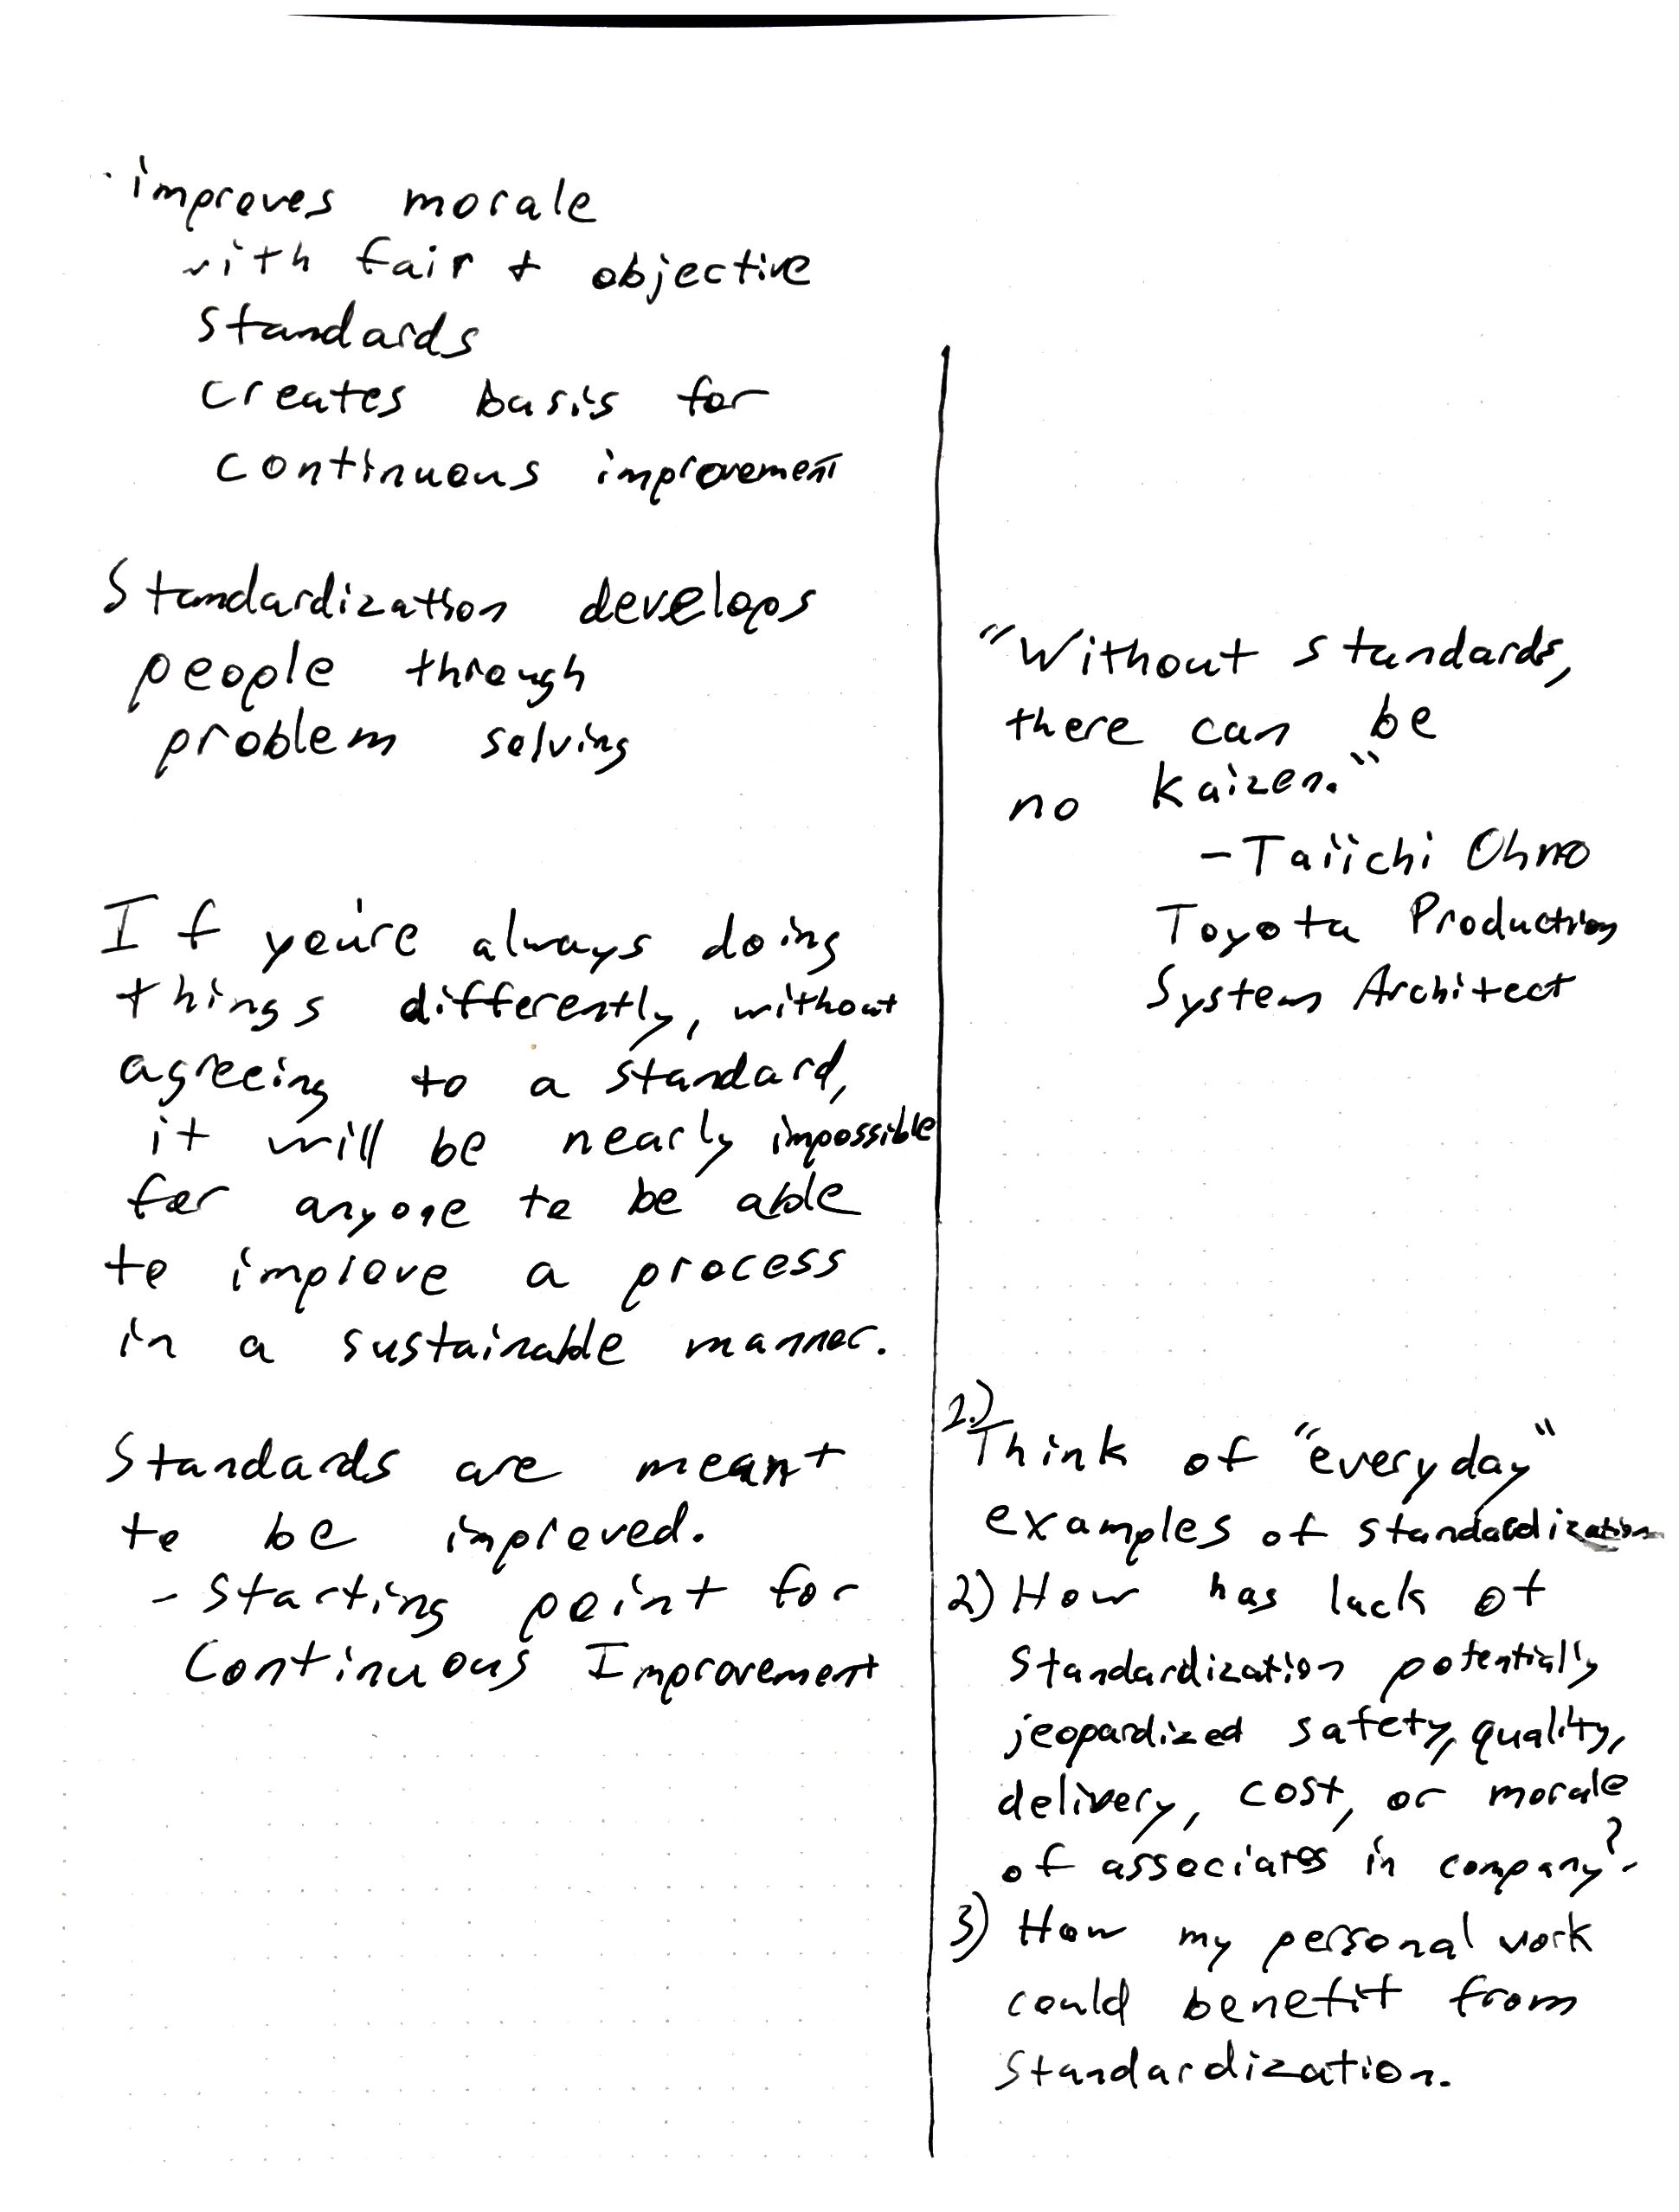 · improves morale
with fair + objective
standards
creates basis for
continuous improvement
Standardization develops
people through
problem solving
If you're always doing
things differently, without
agreeing to a standard,
it will be nearly impossible
for anyone to be able
to improve a process
in a sustainable manner.
Standards are meant
to be improved.
- Starting point for
Continuous Improvement
"Without standards,
there can be
no Kaizen."
- Taiichi Ohno
Toyota Production
System Architect
1.)
Think of "everyday"
examples of standardization
2) How has lack of
Standardization potentially
jeopardized safety, quality,
delivery, cost, or morale
of associates in company?
3) How my personal work
could benefit from
Standardization.